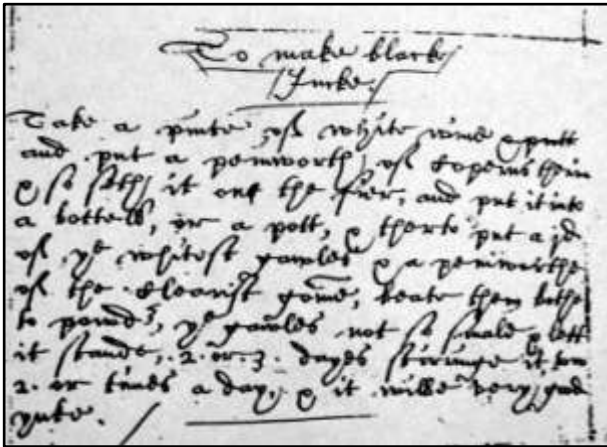 To make blacke
Incke.
Take a pinte of white wine & putt
and put a peniworth of Coperis therin
& so seth it on the fier, and put it into
a bottell, or a pott, & therto put a jd
of ye whitest gawles & a peniworthe
of the Clearist gome, beate them bothe
to powder, ye gawles not so smale & lett
it stande, .2. or .3. dayes stiringe it
2. or times a day, & it wille very good
ynke.